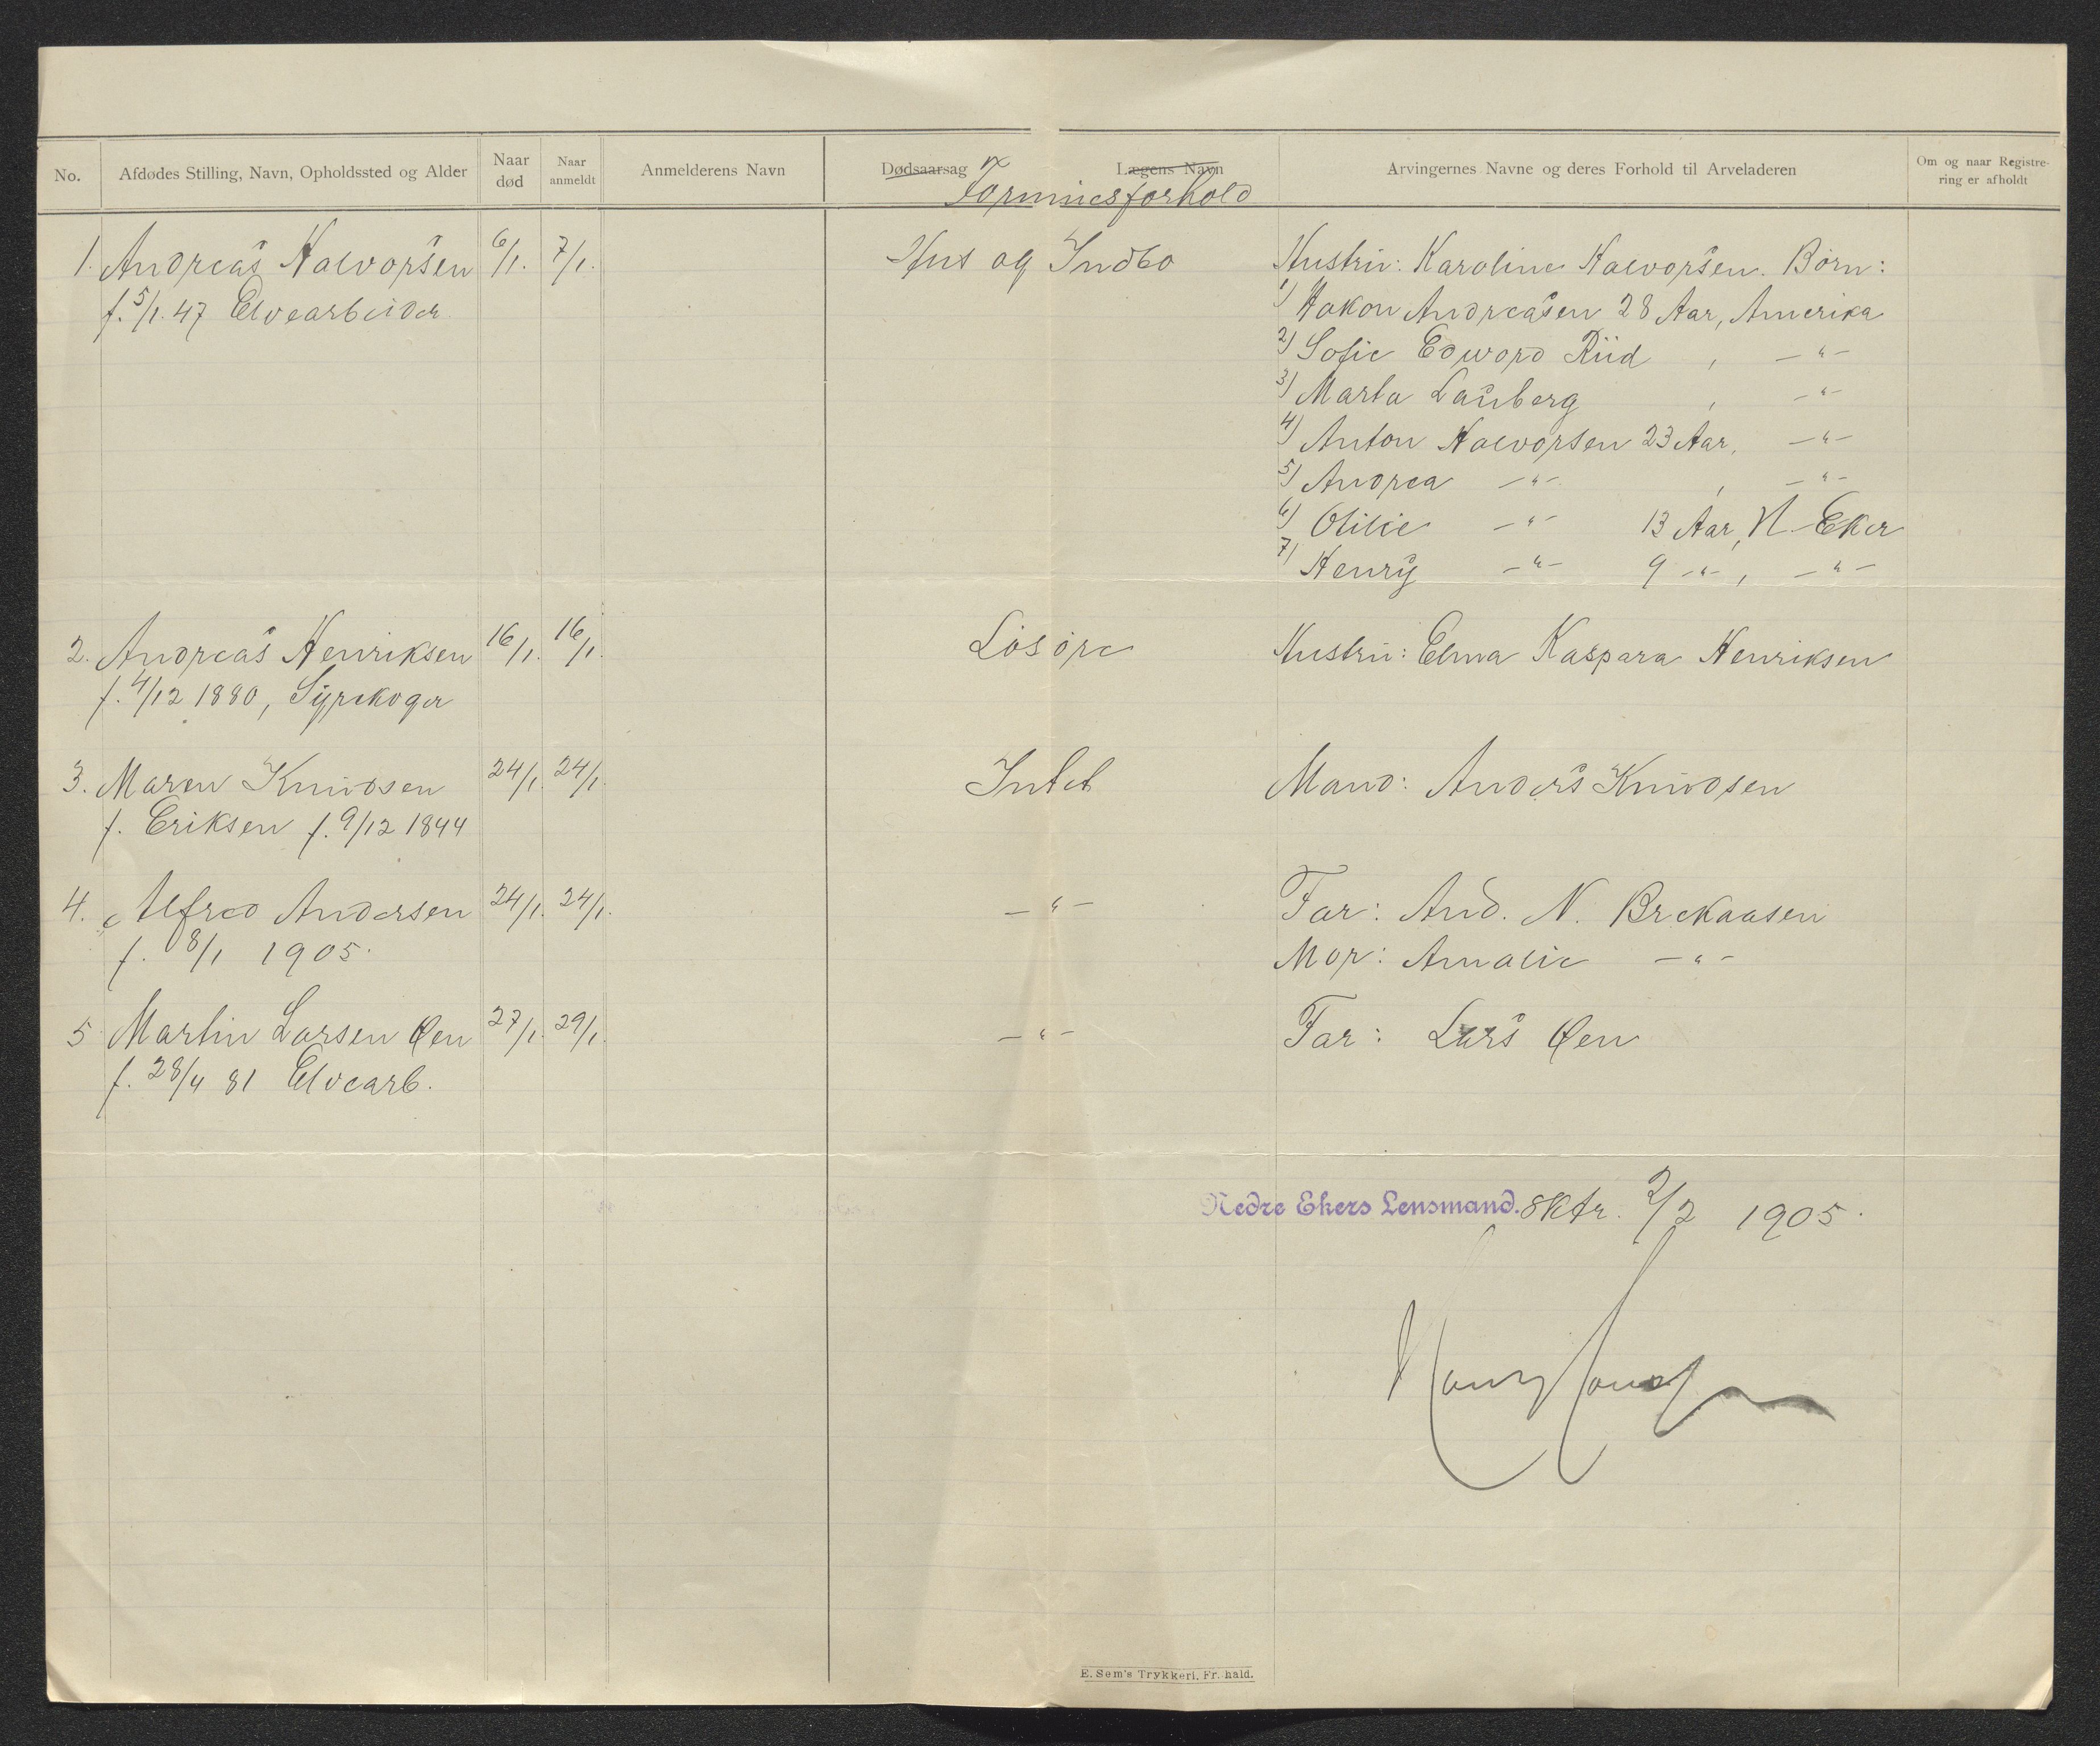 No. Afdødes Stilling, Navn, Opholdssted og Alder Naar død Naar anmeldt Anmelderens Navn Dødsaarsag Lægens Navn Arvingernes Navne og deres Forhold til Arveladeren Om og naar Registrering er afholdt
Formuesforhold
1. Andreas Halvorsen 6/1. 7/1. Hus og Indbo Hustru: Karoline Halvorsen. Börn:
f. 5/1. 47 Elvearbeider 1) Hakon Andreasen 28 Aar, Amerika
2) Sofie Edward Riid , — " —
3) Marta Lauberg , — " —
4) Anton Halvorsen 23 Aar, — " —
5) Andrea — " — , — " —
6) Otilie — " — 13 Aar, N. Eker
7) Henry — " — 9 — " — , — " —
2. Andreas Henriksen 16/1. 16/1. Lösöre Hustru: Elma Kaspara Henriksen
f. 4/12 1880, Syrekoger
3. Maren Knudsen 24/1. 24/1. Intet Mand: Anders Knudsen
f. Eriksen f. 9/12 1844
4. Alfred Andersen 24/1. 24/1. — " — Far: And. N. Brekaasen
f. 8/1 1905. Mor: Amalie — " —
5 Martin Larsen Øen 27/1. 29/1. — " — Far: Lars Øen
f. 28/4 81 Elvearb.
Nedre Ekers Lensmand. Sktr. 2/2 1905.
E. Sem's Trykkeri, Fr. hald.